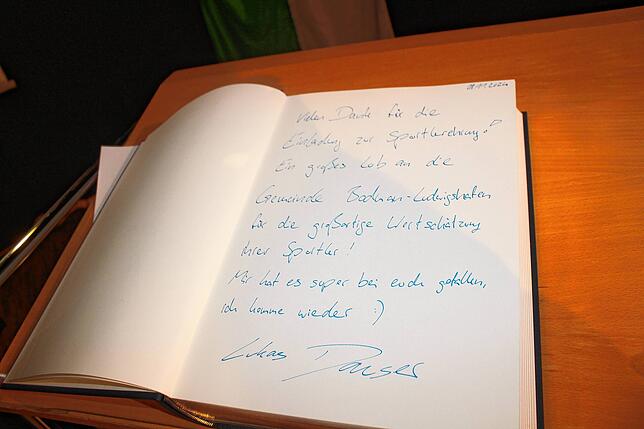 08.11.2024
Vielen Dank für die
Einladung zur Sportlerehrung!
Ein großes Lob an die
Gemeinde Bodman-Ludwigshafen
für die großartige Wertschätzung
ihrer Sportler!
Mir hat es super bei euch gefallen,
ich komme wieder :)
Lukas Dauser